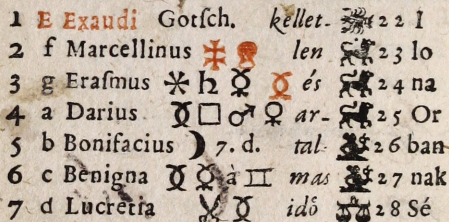 1 E Exaudi Gotſch. kellet- 22 I
2 f Marcellinus len 23 lo
3 g Eraſmus ✶ ♄ ☿ és 24 na
4 a Darius □ ♂ ♀ ar- 25 Or
5 b Bonifacius ☽ 7. d. tal- 26 ban
6 c Benigna ☿ à ♊ mas 27 nak
7 d Lucretia idő ♎ 28 Sé